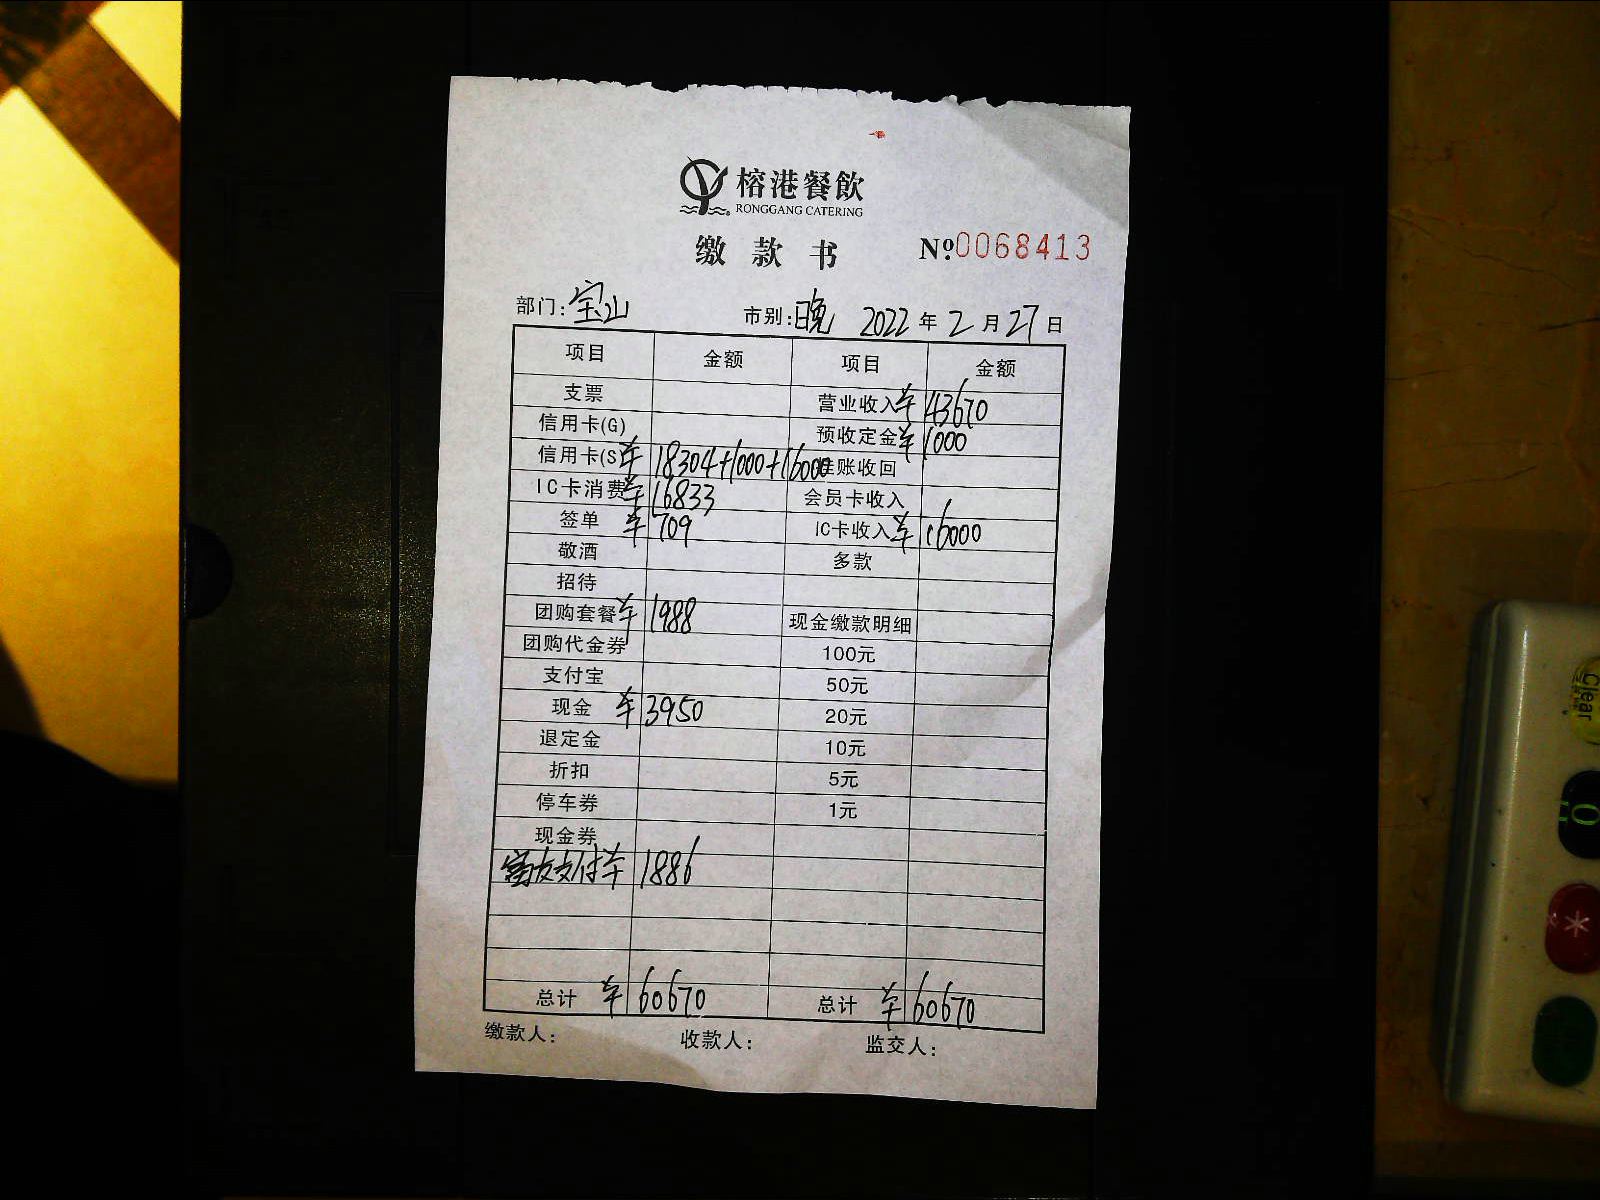 榕港餐飲
RONGGANG CATERING
缴款书 №0068413
部门:宝山 市别:晚 2022年2月27日
项目 金额 项目 金额
支票 营业收入 ¥43670
信用卡(G) 预收定金 ¥1000
信用卡(S) ¥18304+1000+16000 账收回
IC卡消费 ¥16833 会员卡收入
签单 ¥709 IC卡收入 ¥16000
敬酒 多款
招待
团购套餐 ¥1988 现金缴款明细
团购代金券 100元
支付宝 50元
现金 ¥3950 20元
退定金 10元
折扣 5元
停车券 1元
现金券
支付 ¥1886
总计 ¥60670 总计 ¥60670
缴款人: 收款人: 监交人:
Clear
0
*